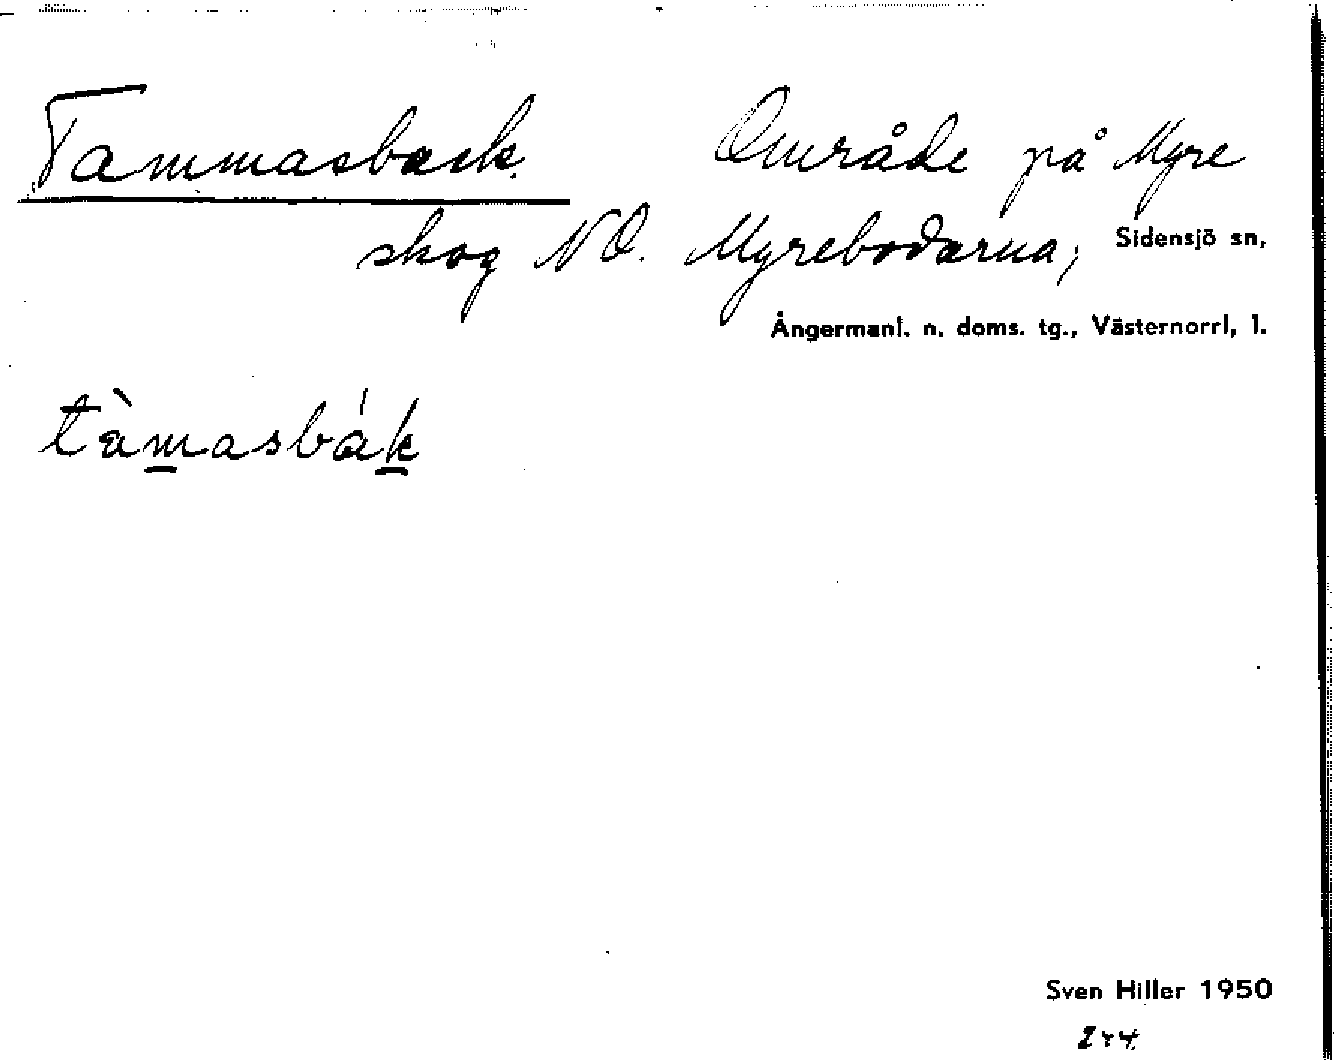 Tammasback. Område på Myre
skog NO. Myrebodarna, Sidensjö sn,
Ångermanl. n. doms. tg., Västernorrl, l.
tàmasbák
Sven Hiller 1950